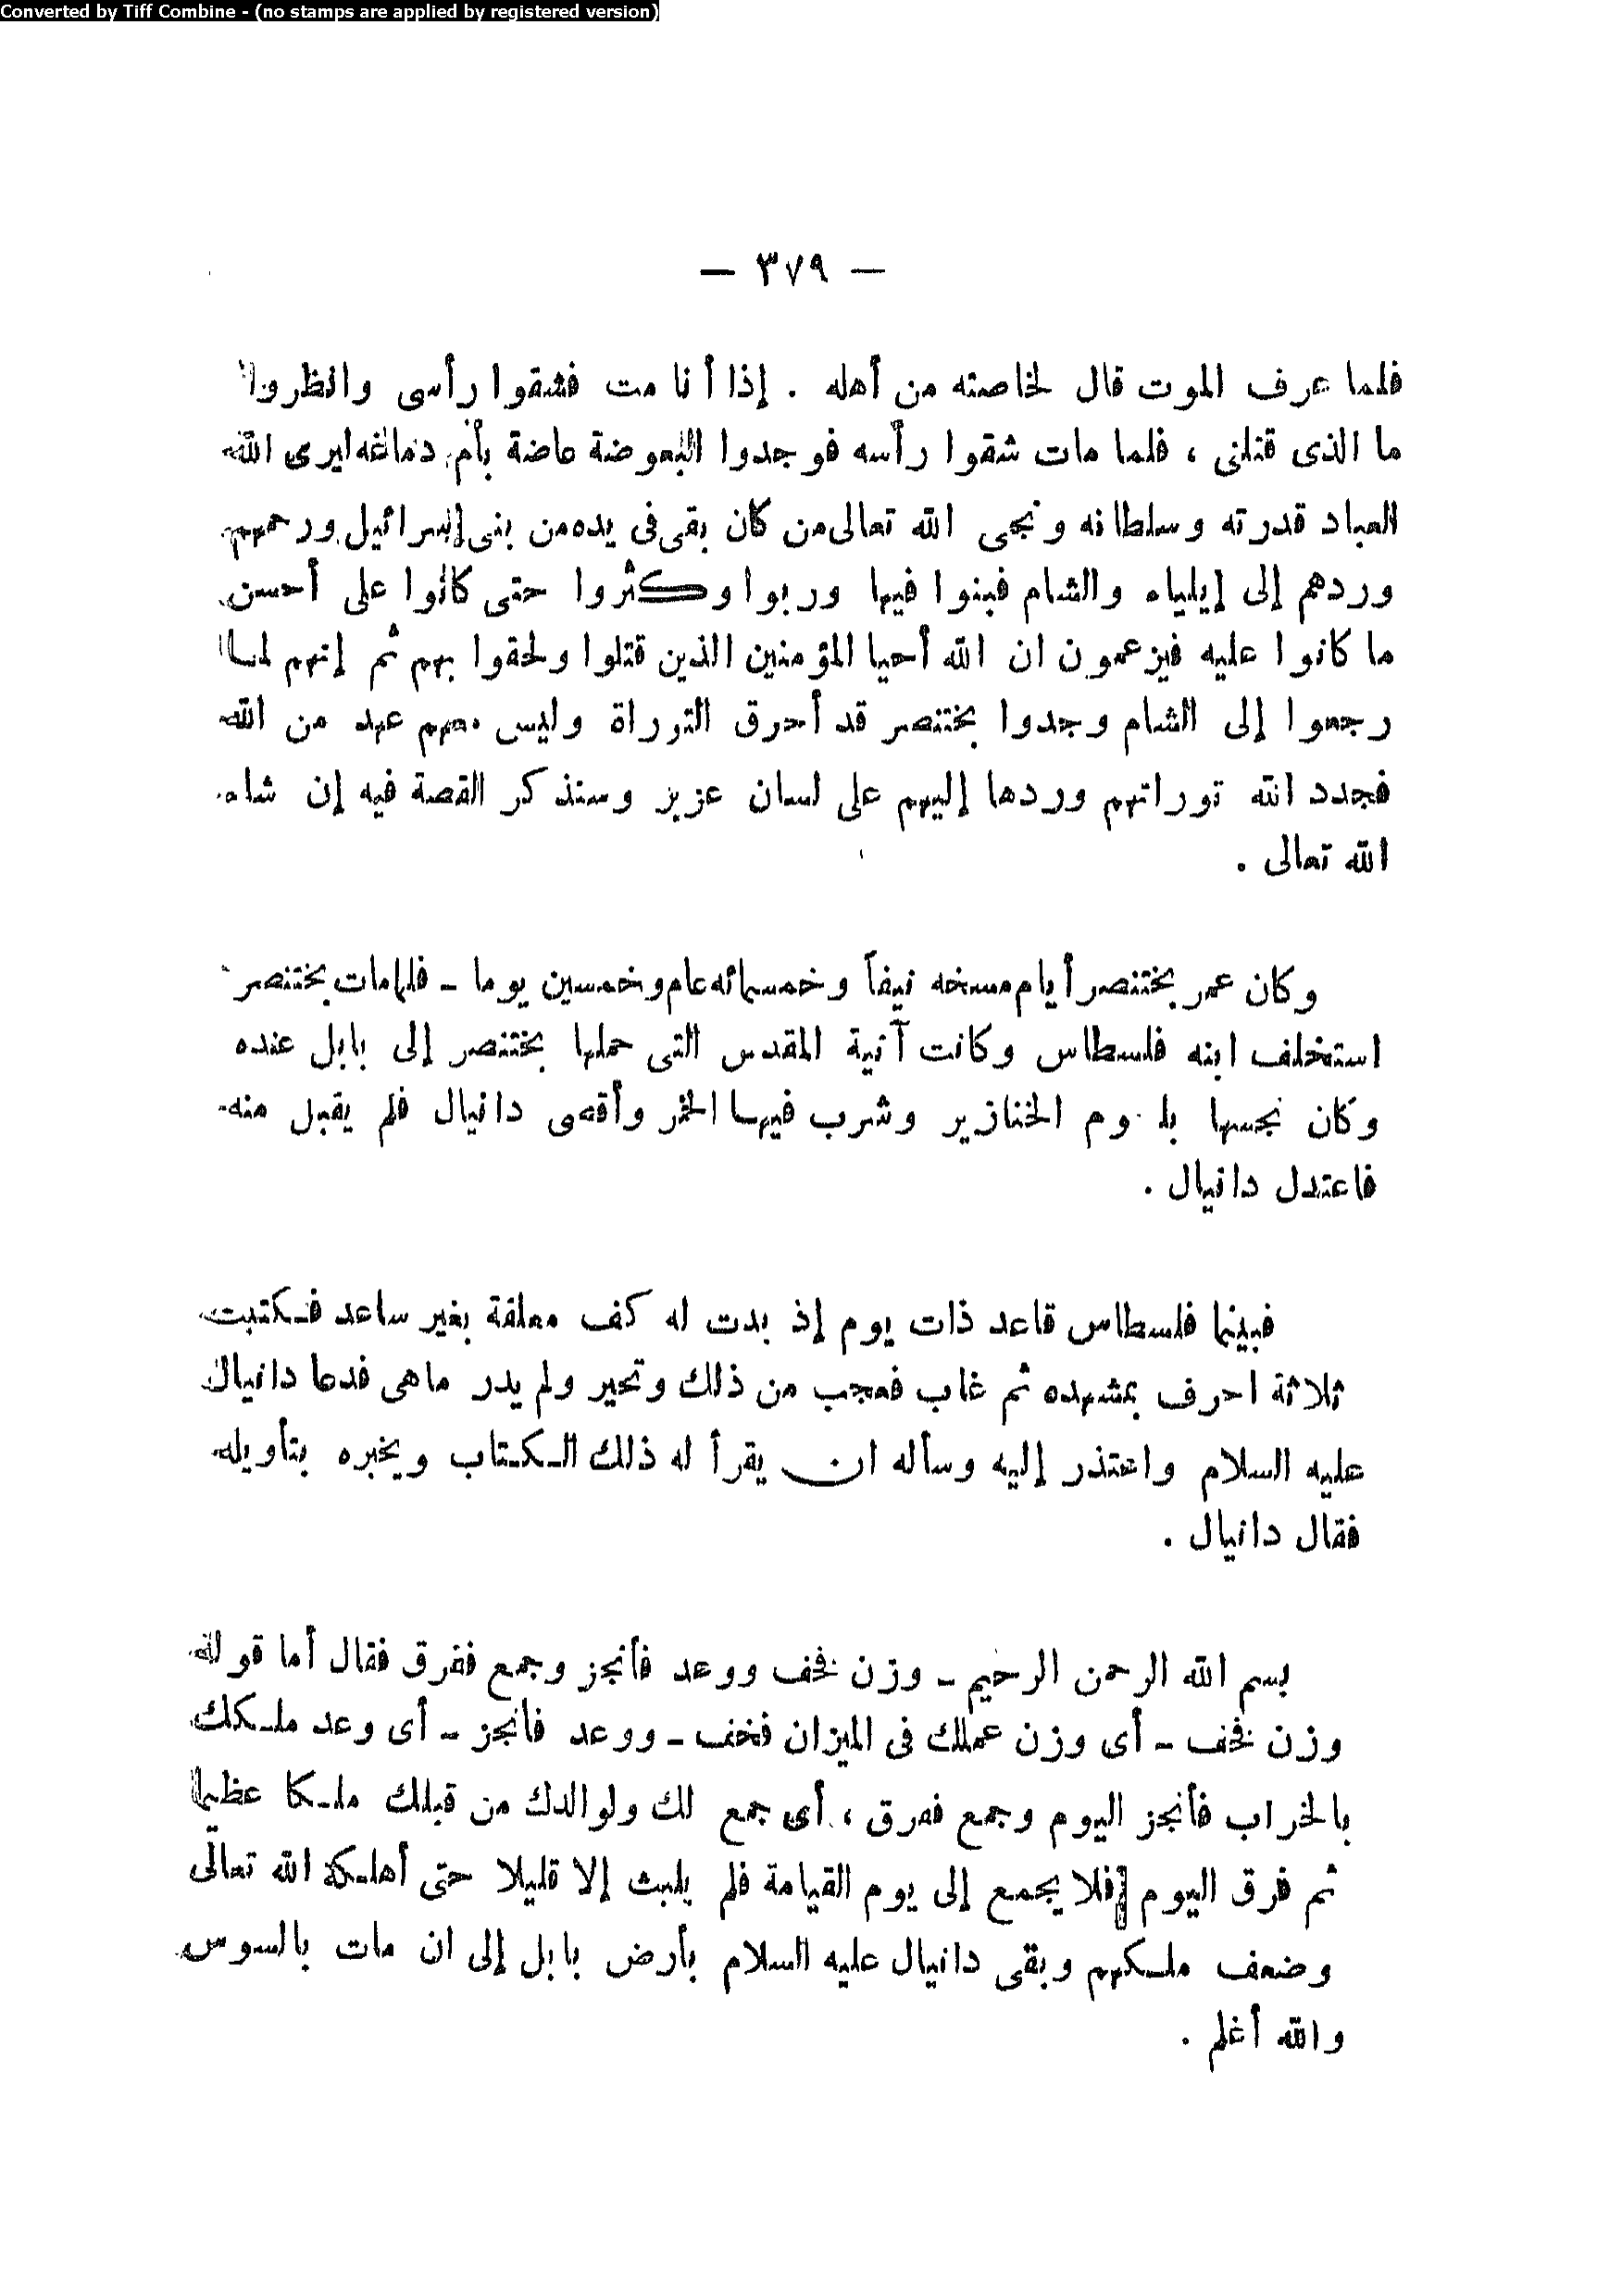 Converted by Tiff Combine - (no stamps are applied by registered version)
— ٣٧٩ —
فلما عرف الموت قال لخاصته من أهله . إذا أنا مت فشقوا رأسى وانظروا
ما الذى قتلنى ، فلما مات شقوا رأسه فوجدوا البعوضة عاضة بأم دماغه ليرى الله
العباد قدرته وسلطانه ونجى الله تعالى من كان بقى فى يده من بنى إسرائيل ورحمهم
وردهم إلى إيلياء والشام فبنوا فيها وربوا وكثروا حتى كانوا على أحسن
ما كانوا عليه فيزعمون ان الله أحيا المؤمنين الذين قتلوا ولحقوا بهم ثم إنهم لما
رجعوا إلى الشام وجدوا بختنصر قد أحرق التوراة وليس معهم عهد من الله
فجدد الله توراتهم وردها إليهم على لسان عزير وسنذكر القصة فيه إن شاء
الله تعالى .
وكان عمر بختنصر أيام مسخه نيفاً وخمسمائه عام وخمسين يوما - فلما مات بختنصر
استخلف ابنه فلسطاس وكانت آنية المقدس التى حملها بختنصر إلى بابل عنده
وكان نجسها بلحوم الخنازير وشرب فيها الخمر وأقصى دانيال فلم يقبل منه
فاعتدل دانيال .
فبينما فلسطاس قاعد ذات يوم إذ بدت له كف معلقة بغير ساعد فكتبت
ثلاثة احرف بمشهده ثم غاب فعجب من ذلك وتحير ولم يدر ماهى فدعا دانيال
عليه السلام واعتذر إليه وسأله ان يقرأ له ذلك الكتاب ويخبره بتأويله
فقال دانيال .
بسم الله الرحمن الرحيم - وزن فخف ووعد فأنجز وجمع ففرق فقال أما قوله
وزن فخف - أى وزن عملك فى الميزان فخف - ووعد فانجز - أى وعد ملكك
بالخراب فأنجز اليوم وجمع ففرق ، أى جمع لك ولوالدك من قبلك ملكا عظيما
ثم فرق اليوم فلا يجمع إلى يوم القيامة فلم يلبث إلا قليلا حتى أهلكه الله تعالى
وضعف ملكهم وبقى دانيال عليه السلام بأرض بابل إلى ان مات بالسوس
والله أعلم .